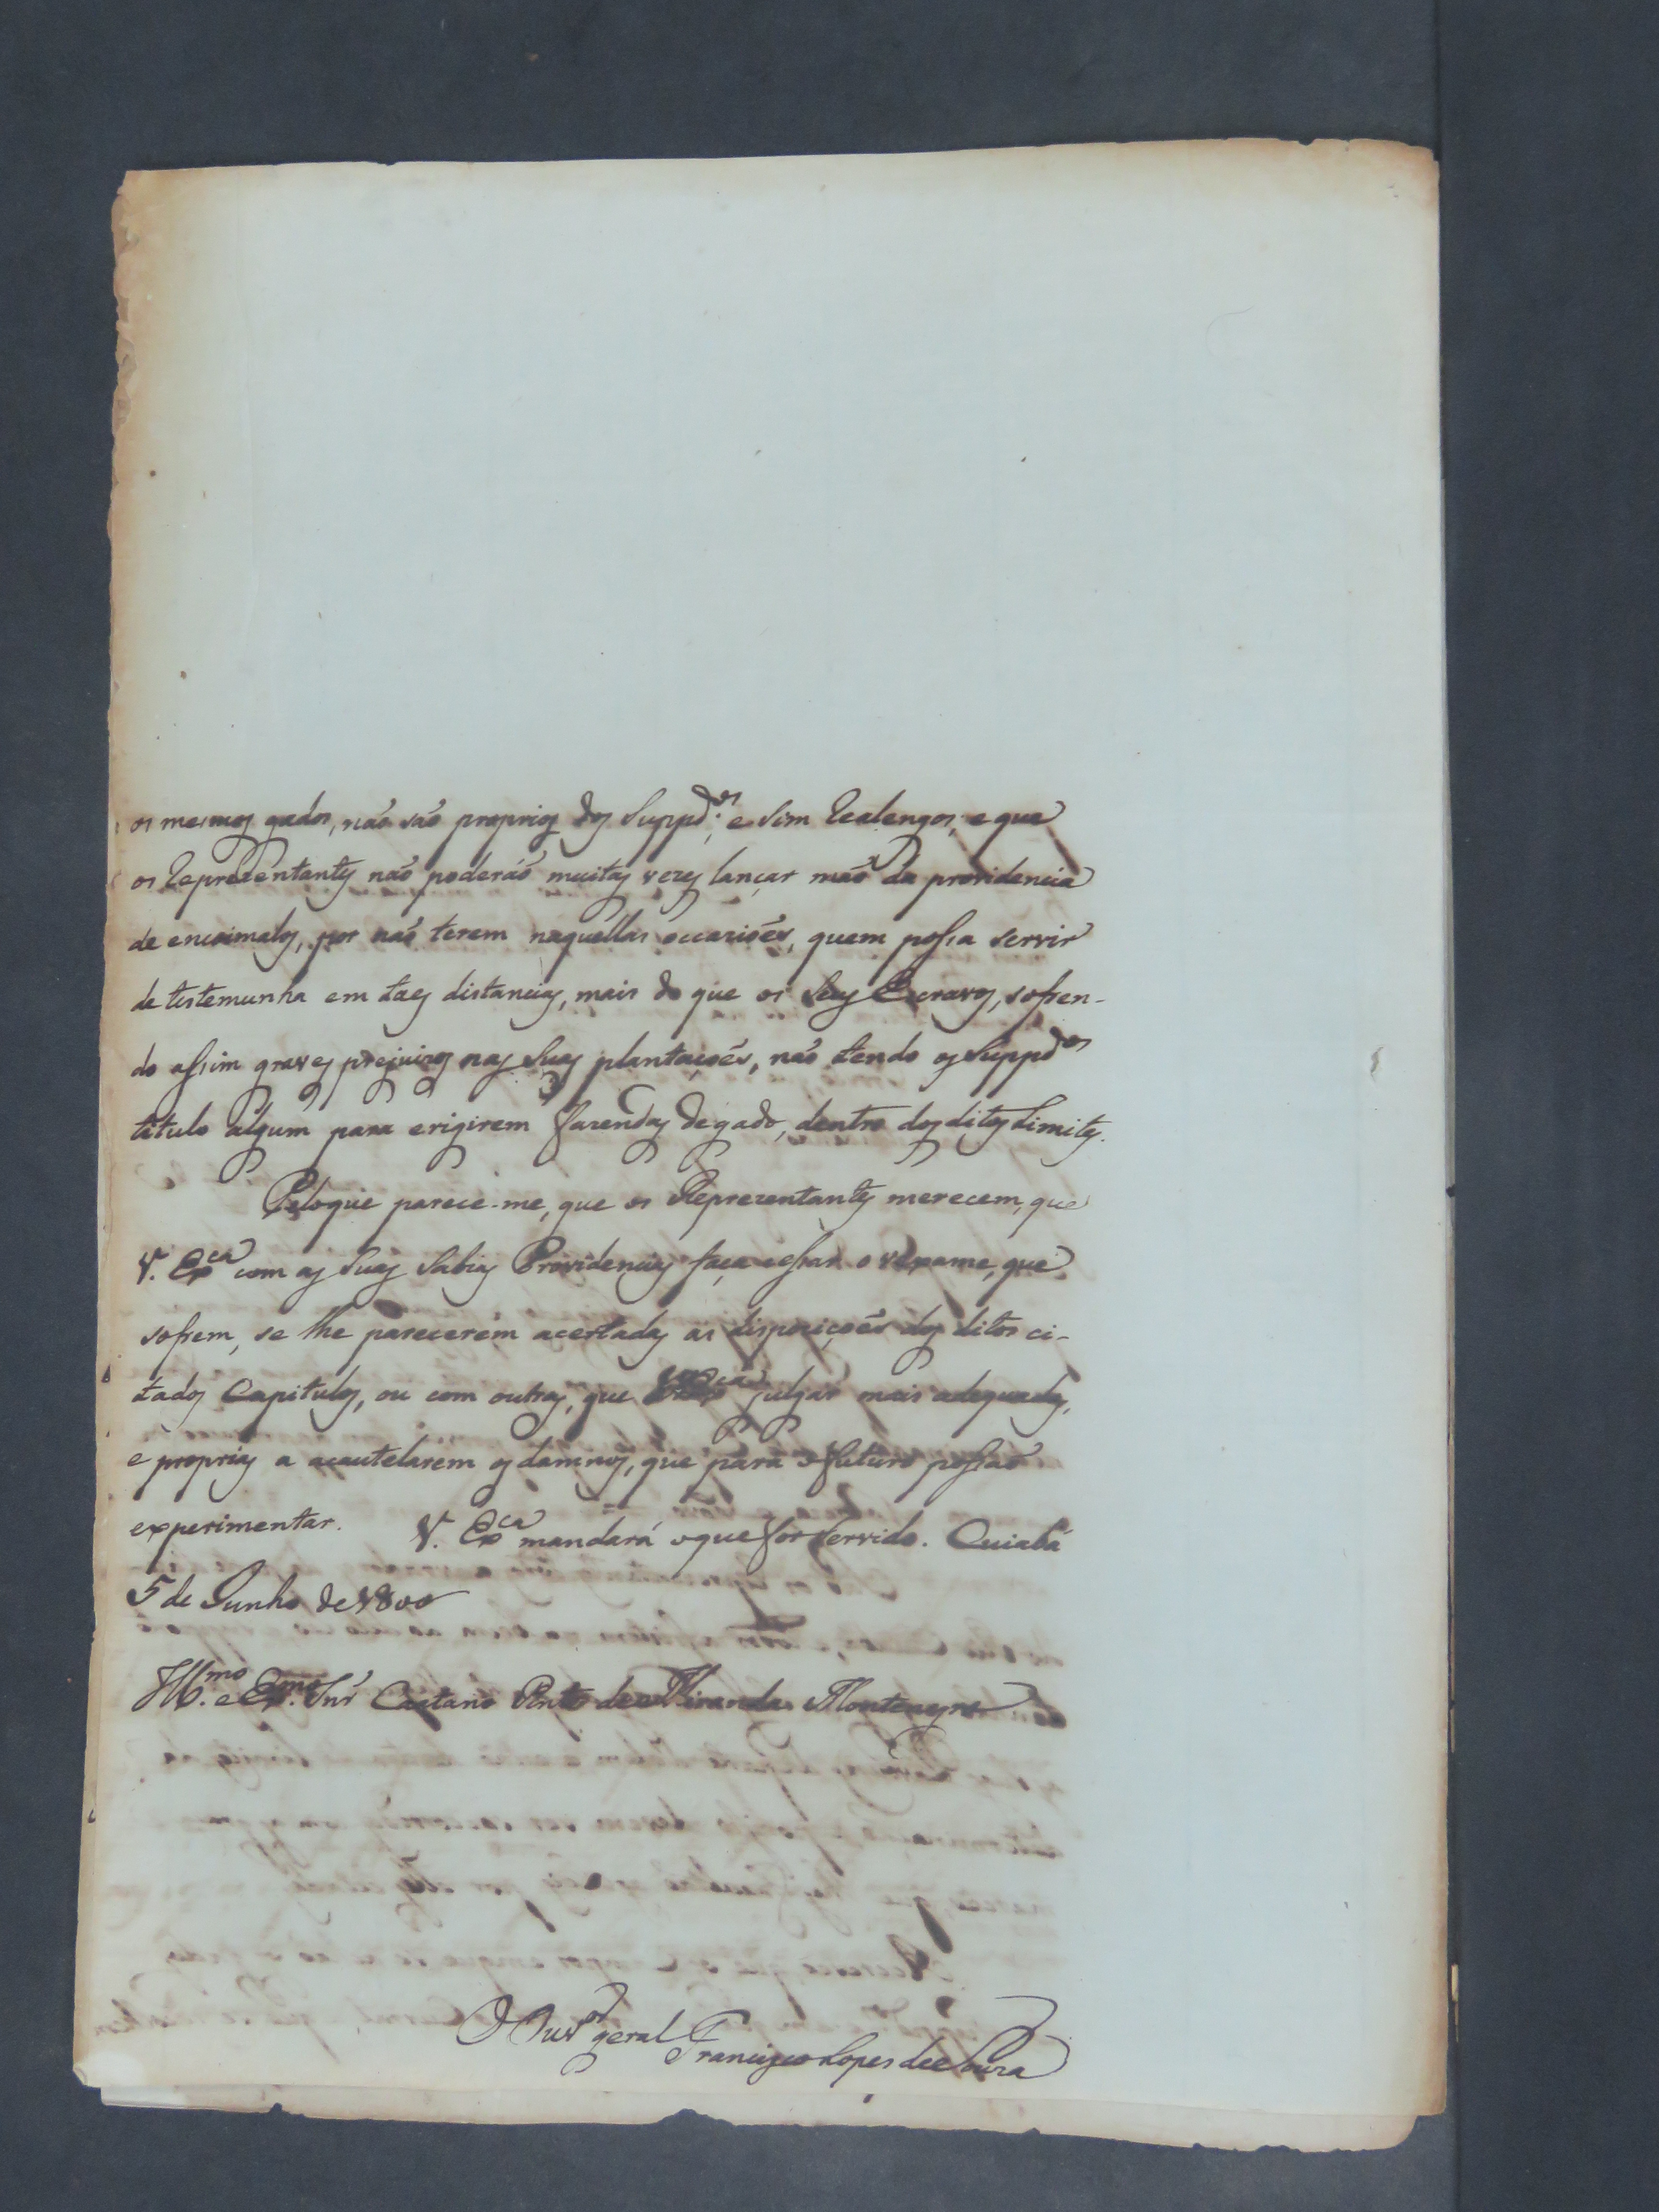 os mesmos gados, não são proprios dos Suppd.os e sim Realengos, e que
os Reprezentantes não poderáõ muitas vezes lançar mão da providencia
de encoimalos, por não terem naquellas occaziões, quem possa servir
de testemunha em taes distancias, mais do que os seus Escravos, sofren-
do assim graves prejuizos nas suas plantações, não tendo os Suppd.os
titulo algum para erigirem fazendas de gado, dentro dos ditos Limites.
Peloque parece-me, que os Reprezentantes merecem, que
V. Ex.ca com as suas sabias Providencias faça cessar o vexame, que
sofrem, se lhe parecerem acertadas as dispozições dos ditos ci-
tados Capitulos, ou com outras, que V. Ex.ca julgar mais adequadas,
e proprias a acautelarem os damnos, que para o futuro possaõ
experimentar. V. Ex.ca mandará o que for servido. Cuiabá
5 de Junho de 1800
Ill.mo e Ex.mo Snr Caetano Pinto de Miranda Montenegro
O Ouv.or geral Francisco Lopes de Souza